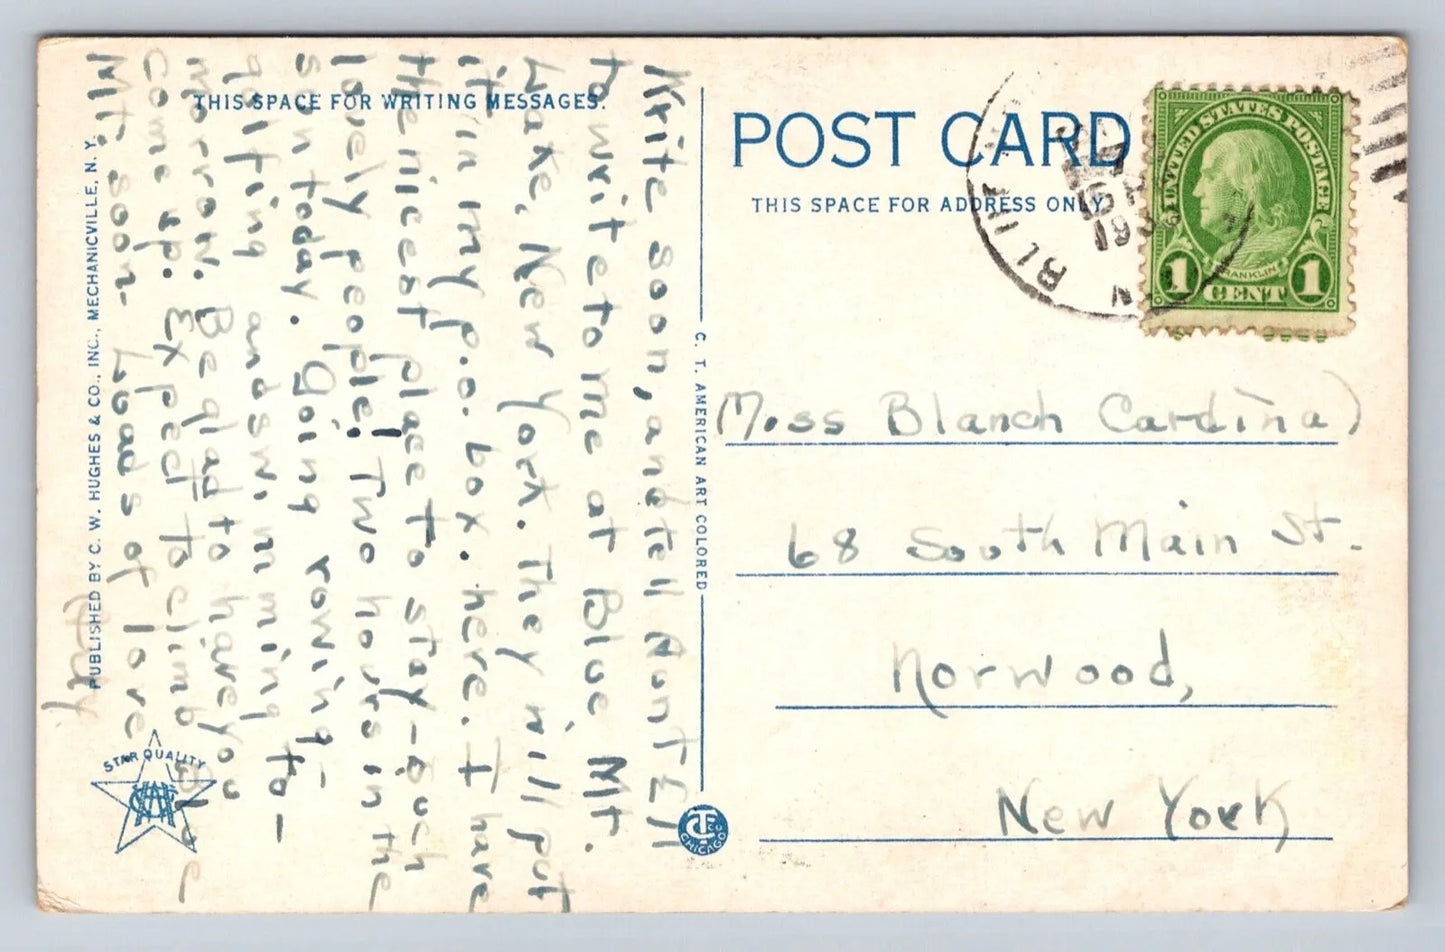 THIS SPACE FOR WRITING MESSAGES.
Write soon, and tell Aunt Ell
to write to me at Blue Mt.
Lake, New York. They will put
it in my p.o. box. here. I have
the nicest place to stay - such
lovely people! Two hours in the
sun today. Going rowing -
golfing and swimming to-
morrow. Be glad to have you
come up. Expect to climb Blue
Mt. soon - Loads of love
PUBLISHED BY C. W. HUGHES & CO., INC., MECHANICVILLE, N. Y.
STAR QUALITY
C. T. AMERICAN ART COLORED
CT CO
CHICAGO
POST CARD
THIS SPACE FOR ADDRESS ONLY
UNITED STATES POSTAGE
FRANKLIN
1 CENT 1
Miss Blanch Cardina
68 South Main St.
Norwood,
New York